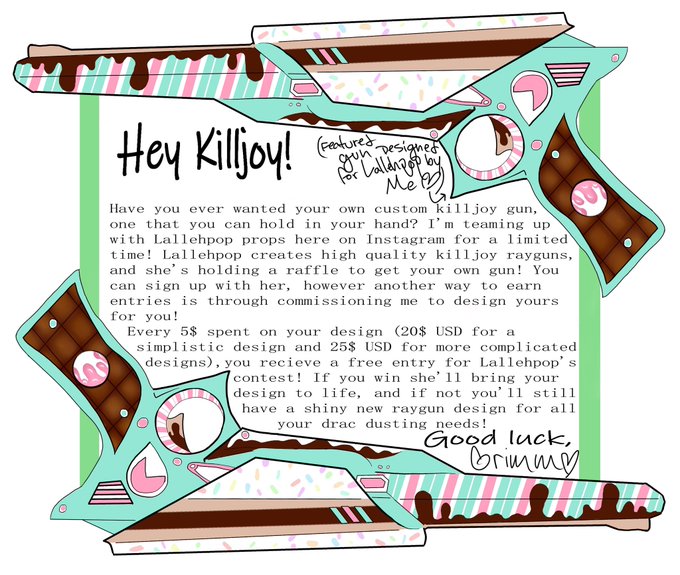 Hey Killjoy!
(Featured
gun designed
for Lallehpop by
Me
Have you ever wanted your own custom killjoy gun,
one that you can hold in your hand? I'm teaming up
with Lallehpop props here on Instagram for a limited
time! Lallehpop creates high quality killjoy rayguns,
and she's holding a raffle to get your own gun! You
can sign up with her, however another way to earn
entries is through commissioning me to design yours
for you!
Every 5$ spent on your design (20$ USD for a
simplistic design and 25$ USD for more complicated
designs),you recieve a free entry for Lallehpop's
contest! If you win she'll bring your
design to life, and if not you'll still
have a shiny new raygun design for all
your drac dusting needs!
Good luck,
Grimm♡